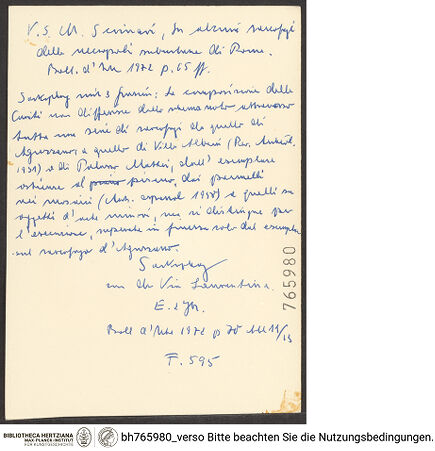 V. S. M. Serinari, Su alcuni sarcofagi
delle necropoli suburbane di Roma.
Boll. d'Arte 1972 p. 65 ff.
Sarkophag mit 3 : La composizione delle
non differisce dallo schema noto attraverso
tutta una serie di sarcofagi da quello di
a quello di Villa Albani
1931) e di Palazzo Mattei, dall' esemplare
ostiense al pisano, dai
nei mosaici 1958) e quelli su
oggetti d'arte minori, ma si distingue per
l'esecuzione, superata in finezza solo dal esemplare
sul sarcofago d'
Sarkophag
an der Via Laurentina.
E. 2 Jh.
Boll d'Arte 1972 p 70 Abb 11/13
F. 595
765980
BIBLIOTHECA HERTZIANA
MAX-PLANCK-INSTITUT
FÜR KUNSTGESCHICHTE
bh765980_verso Bitte beachten Sie die Nutzungsbedingungen.